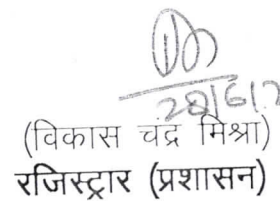 28/6/2
(विकास चंद्र मिश्रा)
रजिस्ट्रार (प्रशासन)